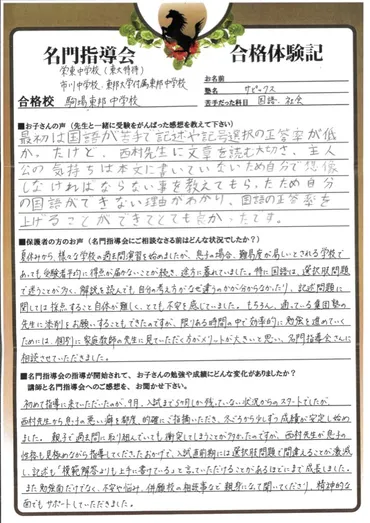 名門指導会 合格体験記
栄東中学校（東大特待）
市川中学校・東邦大学付属東邦中学校
合格校 駒場東邦中学校
お名前
塾名 サピックス
苦手だった科目 国語、社会
■お子さんの声（先生と一緒に受験をがんばった感想を教えて下さい）
最初は国語が苦手で記述や記号選択の正答率が低
か。だけど、西村先生に文章を読む大切さ、主人
公の気持ちは本文に書いていないため自分で想像
しなければならない事を教えてもらったため自分
の国語ができない理由がわかり、国語の正答率を
上げることができてとても良かったです。
■保護者の方のお声（名門指導会にご相談なさる前はどんな状況でしたか？）
夏休みから、様々な学校の過去問演習を始めましたが、息子の場合、難易度が易しいとされる学校で
あっても受験者平均に得点が届かないことが続き、途方に暮れていました。特に国語は、選択肢問題
で迷うことが多く、解説を読んでも自分の考え方がなぜ違うのかが分からなかったり、記述問題に
関しては採点すること自体が難しく、とても不安を感じていました。もちろん、通っている集団塾の
先生に添削をお願いすることもできたのですが、限りある時間の中で効率的に勉強を進めていく
ためには、個別に家庭教師の先生に見ていただく方がメリットが大きいと思い、名門指導会さんに
相談させていただきました。
■名門指導会の指導が始まって、お子さんの勉強や成績にどんな変化がありましたか？
講師と名門指導会へのご感想を、お聞かせ下さい。
初めて指導に来ていただいたのが、9月、入試まで5ヶ月しか残っていない状況からのスタートでしたが、
西村先生から息子の悪い癖を都度、的確にご指摘いただき、冬ごろから少しずつ成績が安定し始め
ました。親子で過去問に取り組んでいても衝突してしまうことが多かったのですが、西村先生が息子の
性格も見極めながら指導してくださったおかげで、入試直前期には選択肢問題で間違えることが激減
し、記述も「模範解答よりも上手に書けている」と言っていただけることがあるほどにまで成長しました。
また勉強面だけでなく、不安や悩み、併願校の相談等など親身になって聞いてくださり、精神的な
面でもサポートしていただきました。